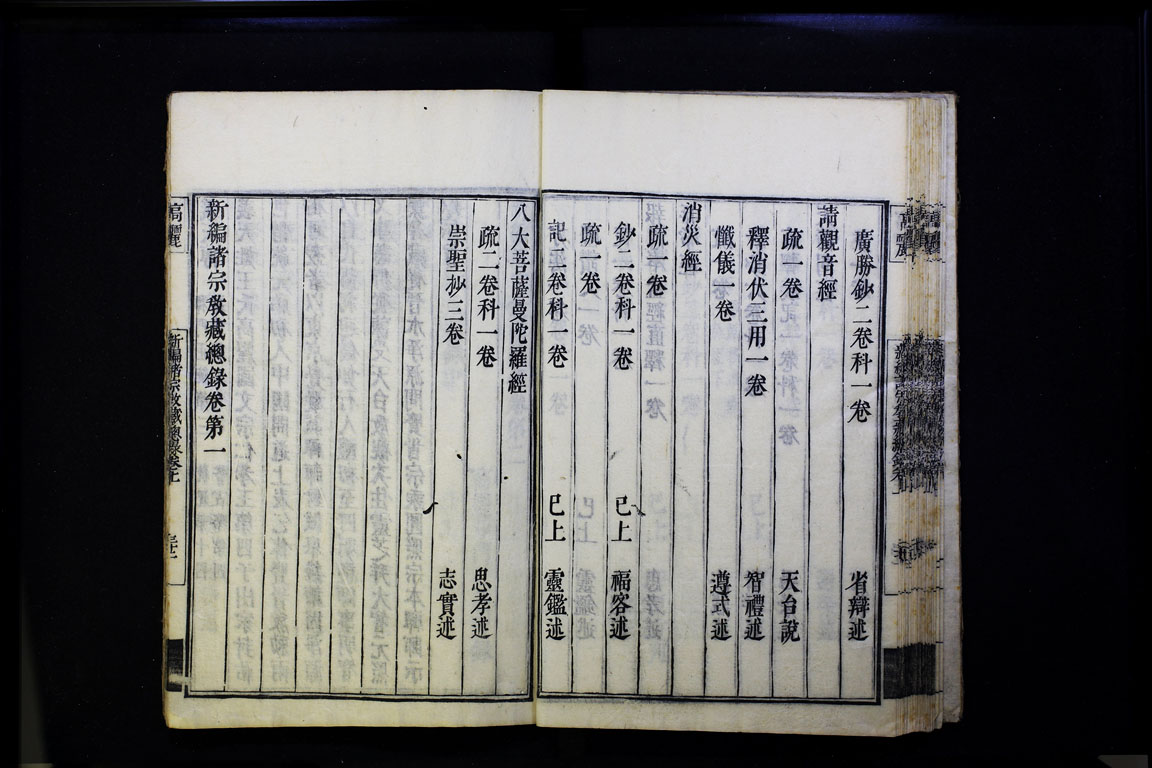 廣勝鈔二卷科一卷 省辯述
請觀音經
疏一卷 天台說
釋消伏三用一卷 智禮述
懺儀一卷 遵式述
消災經
疏一卷
鈔二卷科一卷 已上 福容述
疏一卷
記二卷科一卷 已上 靈鑑述
八大菩薩曼陀羅經
疏二卷科一卷 思孝述
崇聖抄三卷 志實述
新編諸宗教藏總錄卷第一
高麗
新編諸宗教藏總錄卷上